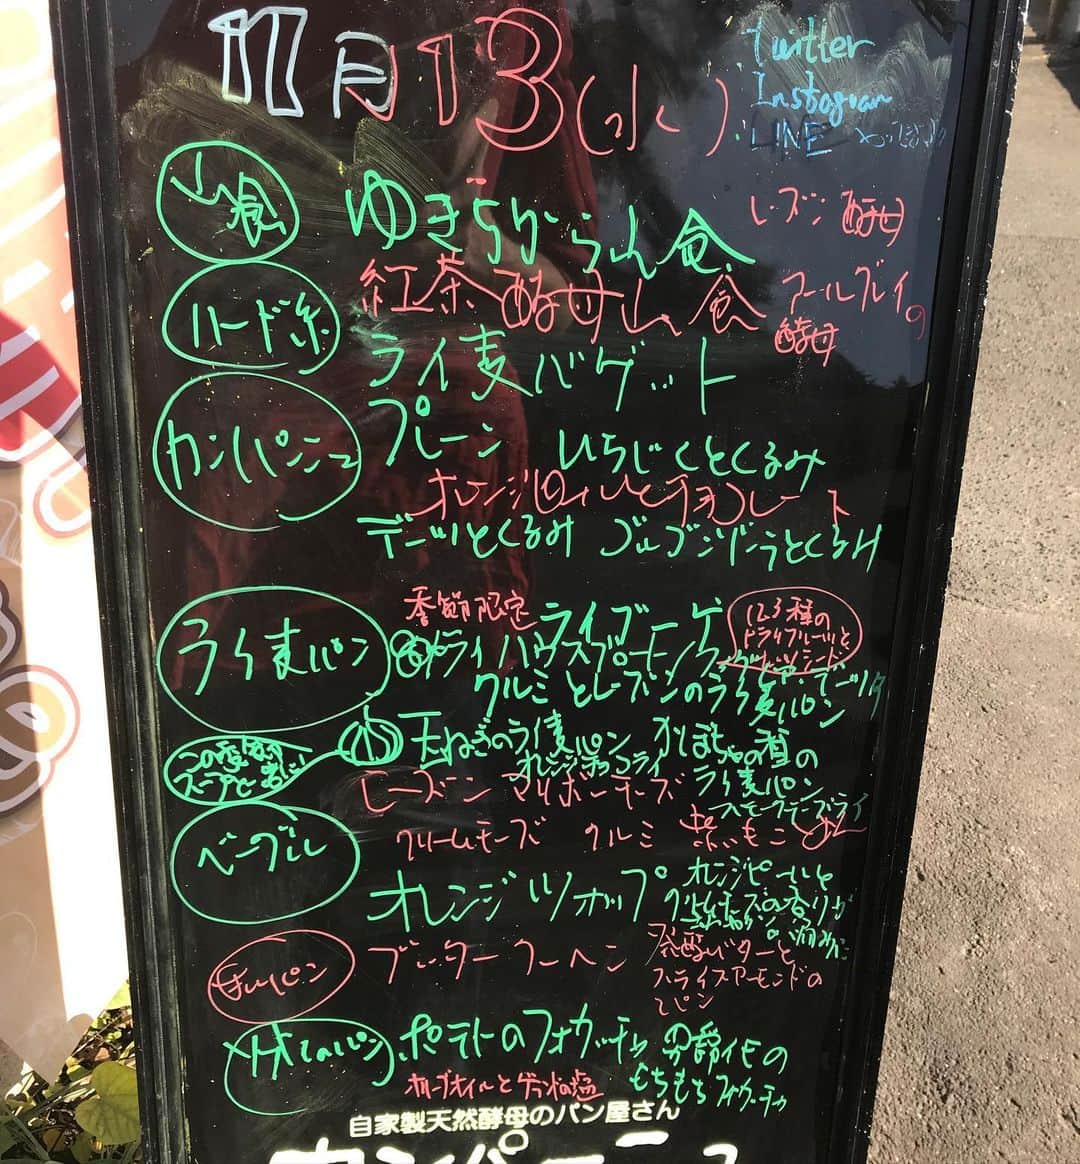 11月13(水)
Twitter
Instagram
LINE
山食
ゆきちから山食
レーズン酵母
紅茶酵母山食
アールグレイの
酵母
ハード系
ライ麦バゲット
カンパーニュ
プレーン いちじくとくるみ
オレンジピールとチョコレート
デーツとくるみ ゴルゴンゾーラとくるみ
ライ麦パン
季節限定
ライブルーゲ
ドライハウスブローニング
クルミとレーズンのライ麦パン
この季節の
スープと共に!
玉ねぎのライ麦パン かぼちゃの種の
ライ麦パン
オレンジチョコライ
スモークチーズライ
ベーグル
レーズン マリボーチーズ
クリームチーズ クルミ 紫いも
オレンジツォップ
オレンジピールと
甘いパン
ブッタークーヘン
発酵バターと
スライスアーモンドの
パン
ポテトのフォカッチャ
男爵イモの
もちもちフォカッチャ
オリーブオイルとゲランドの塩
自家製天然酵母のパン屋さん
カンパーニュ